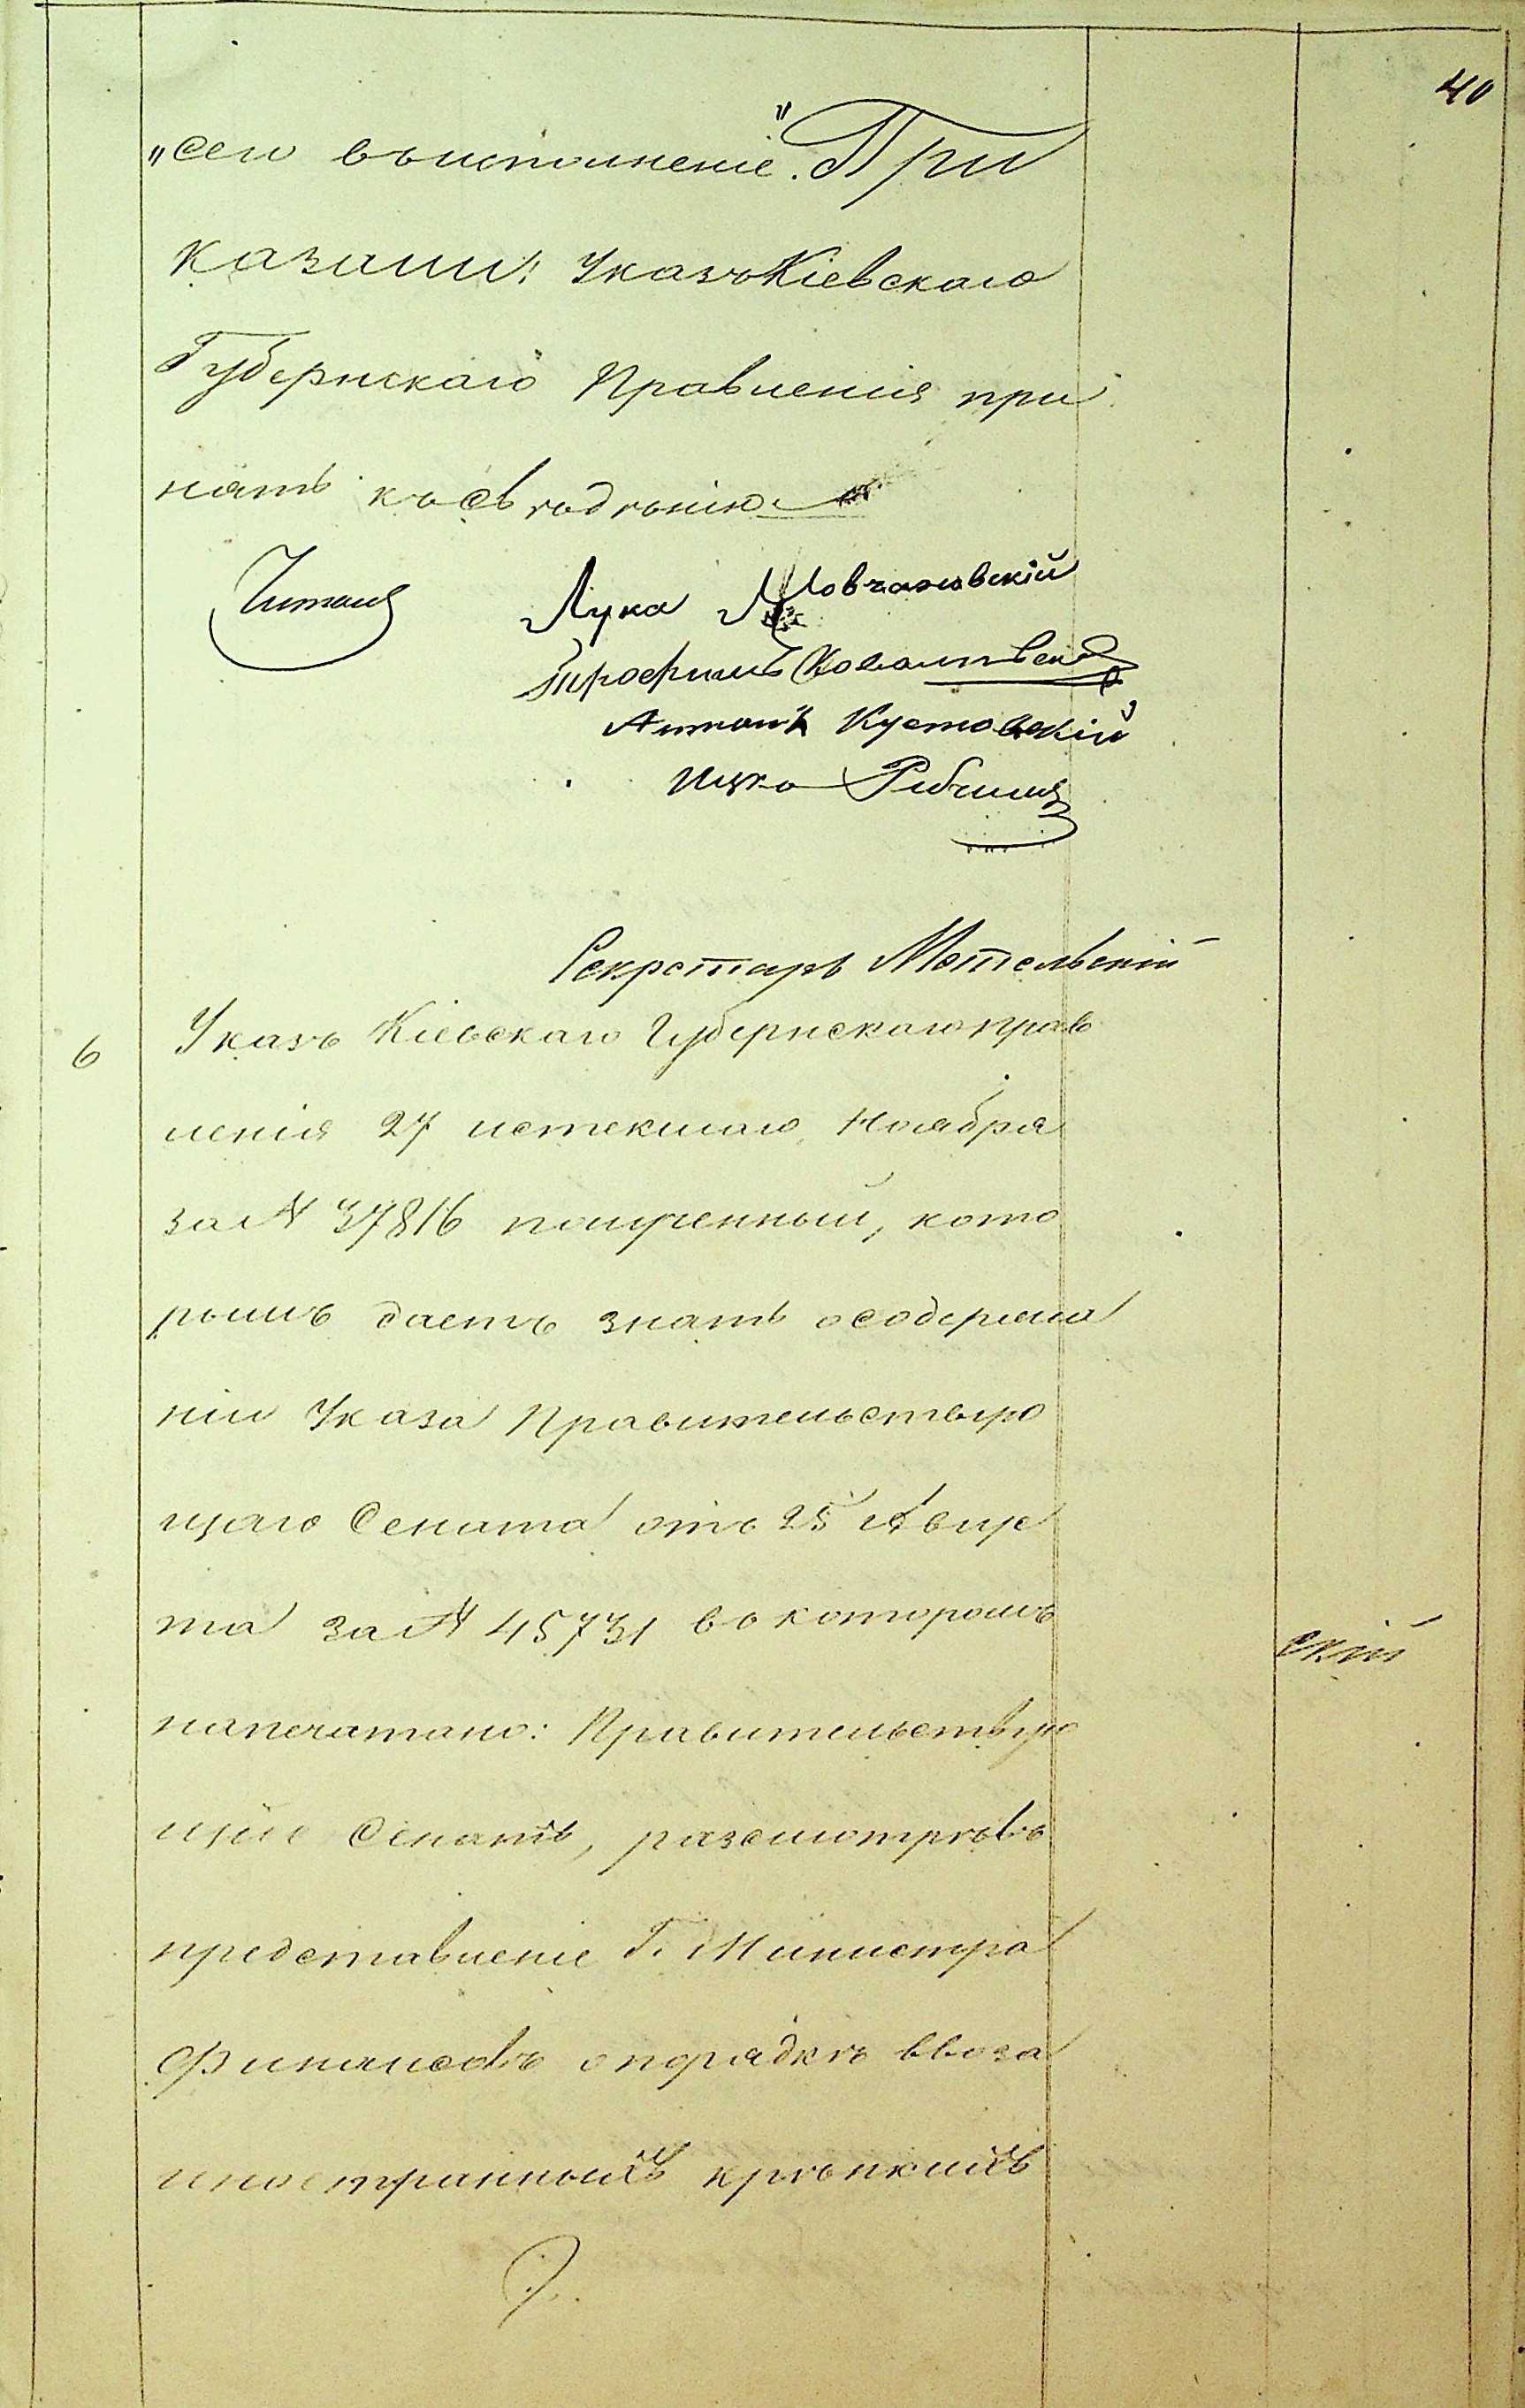 40
„сего выполненіе". При
казали: Указъ Кіевскаго
Губернскаго Правленія при
нять къ свѣдѣнію.
Читалъ
Лука Мовчановскій
Трофимъ
Антонъ Кустовскій
Ицко
Секретарь Мотельскій
6
Указъ Кіевскаго Губернскаго прав
ленія 27 истекшаго Ноября
за № 37816 полученный, кото
рымъ даетъ знать о содержа
ніи Указа Правительствую
щаго Сената отъ 25 Авгус
та за № 45731 въ которомъ
скій
напечатано: Правительствую
щій Сенатъ, разсмотрѣвъ
представленіе Г. Министра
Финансовъ о порядкѣ ввоза
иностранныхъ крѣпкихъ